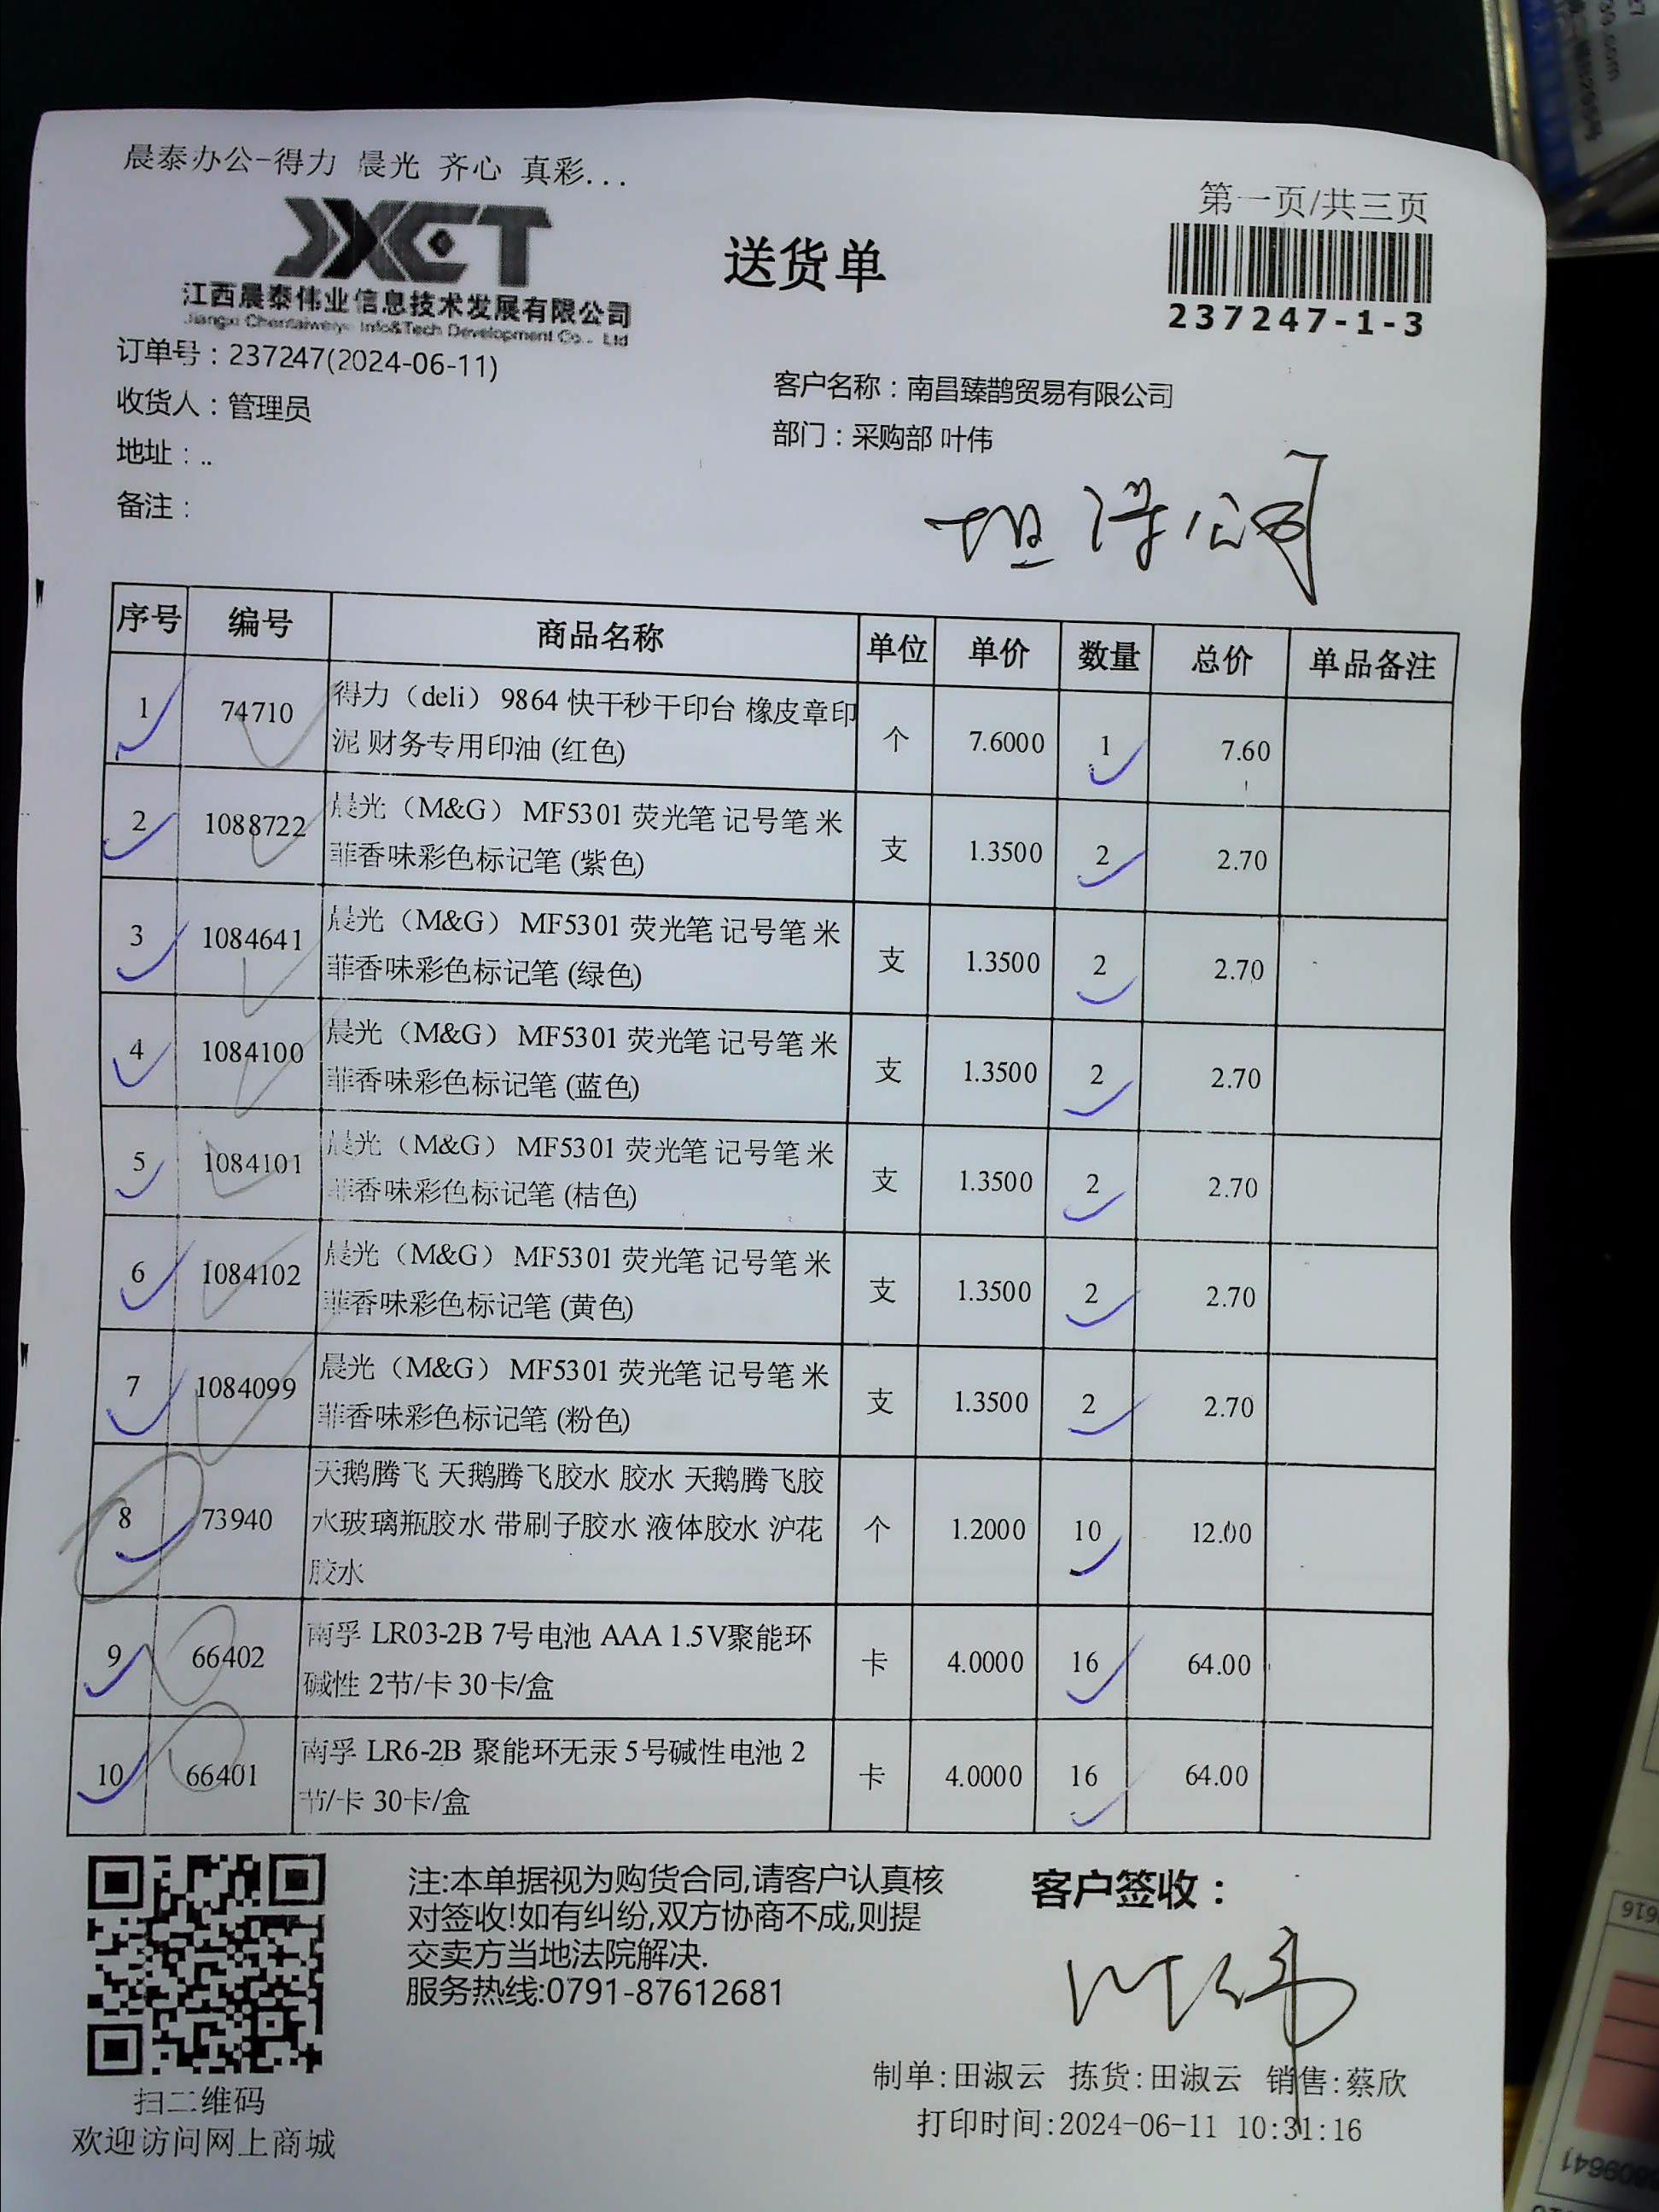 晨泰办公-得力 晨光 齐心 真彩...
第一页/共三页
JXCT
送货单
江西晨泰伟业信息技术发展有限公司
Jiangxi Chentaiweiye Info&Tech Development Co., Ltd
237247-1-3
订单号：237247(2024-06-11)
客户名称：南昌臻鹊贸易有限公司
收货人：管理员
部门：采购部 叶伟
地址：..
备注：
公司
序号 编号 商品名称 单位 单价 数量 总价 单品备注
1 74710 得力（deli） 9864 快干秒干印台 橡皮章印
泥 财务专用印油 (红色) 个 7.6000 1 7.60
2 1088722 晨光（M&G） MF5301 荧光笔 记号笔 米
菲香味彩色标记笔 (紫色) 支 1.3500 2 2.70
3 1084641 晨光（M&G） MF5301 荧光笔 记号笔 米
菲香味彩色标记笔 (绿色) 支 1.3500 2 2.70
4 1084100 晨光（M&G） MF5301 荧光笔 记号笔 米
菲香味彩色标记笔 (蓝色) 支 1.3500 2 2.70
5 1084101 晨光（M&G） MF5301 荧光笔 记号笔 米
菲香味彩色标记笔 (桔色) 支 1.3500 2 2.70
6 1084102 晨光（M&G） MF5301 荧光笔 记号笔 米
菲香味彩色标记笔 (黄色) 支 1.3500 2 2.70
7 1084099 晨光（M&G） MF5301 荧光笔 记号笔 米
菲香味彩色标记笔 (粉色) 支 1.3500 2 2.70
8 73940 天鹅腾飞 天鹅腾飞胶水 胶水 天鹅腾飞胶
水玻璃瓶胶水 带刷子胶水 液体胶水 沪花
胶水 个 1.2000 10 12.00
9 66402 南孚 LR03-2B 7号电池 AAA 1.5V聚能环
碱性 2节/卡 30卡/盒 卡 4.0000 16 64.00
10 66401 南孚 LR6-2B 聚能环无汞 5号碱性电池 2
节/卡 30卡/盒 卡 4.0000 16 64.00
注:本单据视为购货合同,请客户认真核
对签收!如有纠纷,双方协商不成,则提
交卖方当地法院解决.
服务热线:0791-87612681
客户签收：
叶伟
扫二维码
欢迎访问网上商城
制单:田淑云 拣货:田淑云 销售:蔡欣
打印时间:2024-06-11 10:31:16